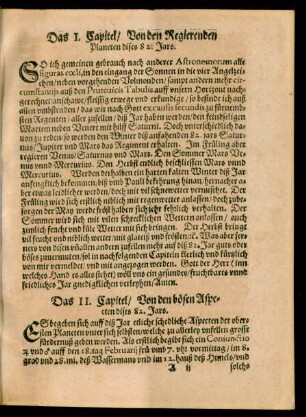 Das I. Capitel/ Von den Regierenden
Planeten dises 82. Jars.
SO ich gemeinen gebrauch nach anderer Astronomorum alle
figuras coeli, in den eingang der Sonnen in die vier Angelzei-
chen/ neben vorgehenden Volmonden/ sampt andern mehr cir-
cumstantijs auß den Prutenicis Tabulis auff unsern Horizont nach-
gerechnet/ anschawe/ fleissig erwege und erkundige/ so befinde ich auß
allen umbstenden/ das wir nach Gott ex causis secundis zu furnemsten
Regenten/ aller zufellen/ diß Jar haben werden/ den feindseligen
Martem neben Venere mit hilff Saturni. Doch unterschiedlich da-
von zu reden so werden den Winter diß anfahenden 82. jars Satur-
nus/ Jupiter und Mars das Regiment erhalten. Im Früling aber
regieren Venus Saturnus und Mars. Den Sommer Mars Ve-
nus und Mercurius. Den Herbst endlich beschliessen Mars Venus
Mercurius. Werden derhalben ein harten kalten Winter diß Jar
anfencklich bekommen/ biß umb Pauli bekehrung hinan/ hernacher a-
ber etwas leidlicher werden/ doch mit vil schneewetter vermischet. Der
Früling wird sich erstlich nidlich mit regenwetter anlassen/ doch zube-
sorgen der May werde sechßhalben sich sehr fehrlich verhalten. Der
Sommer wird sich mit vilen schrecklichen Wettern anlassen/ auch
zimlich feucht und füle Wetter mit sich bringen. Der Herbst bringt
vil feucht und nidlich wetter mit gleich und frösten/ &c. Was aber fer-
ners von disen zufallen andern zufellen mehr auß diß 82. Jar guts oder
böses zuvermuten/ sol in nachfolgenden Capiteln klerlich und fürtzlich
von mir vermeldet/ und mit angezogen werden. Gott der Herr (inn
welches Hand es alles stehet) wöll uns ein gesundes/ fruchtbares unnd
friedliches Jar gnediglichen verleyhen/ Amen.
Das II. Capitel/ Von den bösen Aspe-
cten dises 82. Jars.
ES begeben sich auff diß Jar etliche schedliche Aspecten der ober-
sten Planeten unter sich selbsten/ welche zu allerley unfellen grosse
fürdernuß geben werden. Als erstlich begibt sich ein Coniunctio
♄ und ♂ auff den 18. tag Februarij frü umb 7. uhr vormittag/ im 8.
grad und 28. mi. deß Wassermans und im 12. hauß deß Himels/ und
A ij solchs